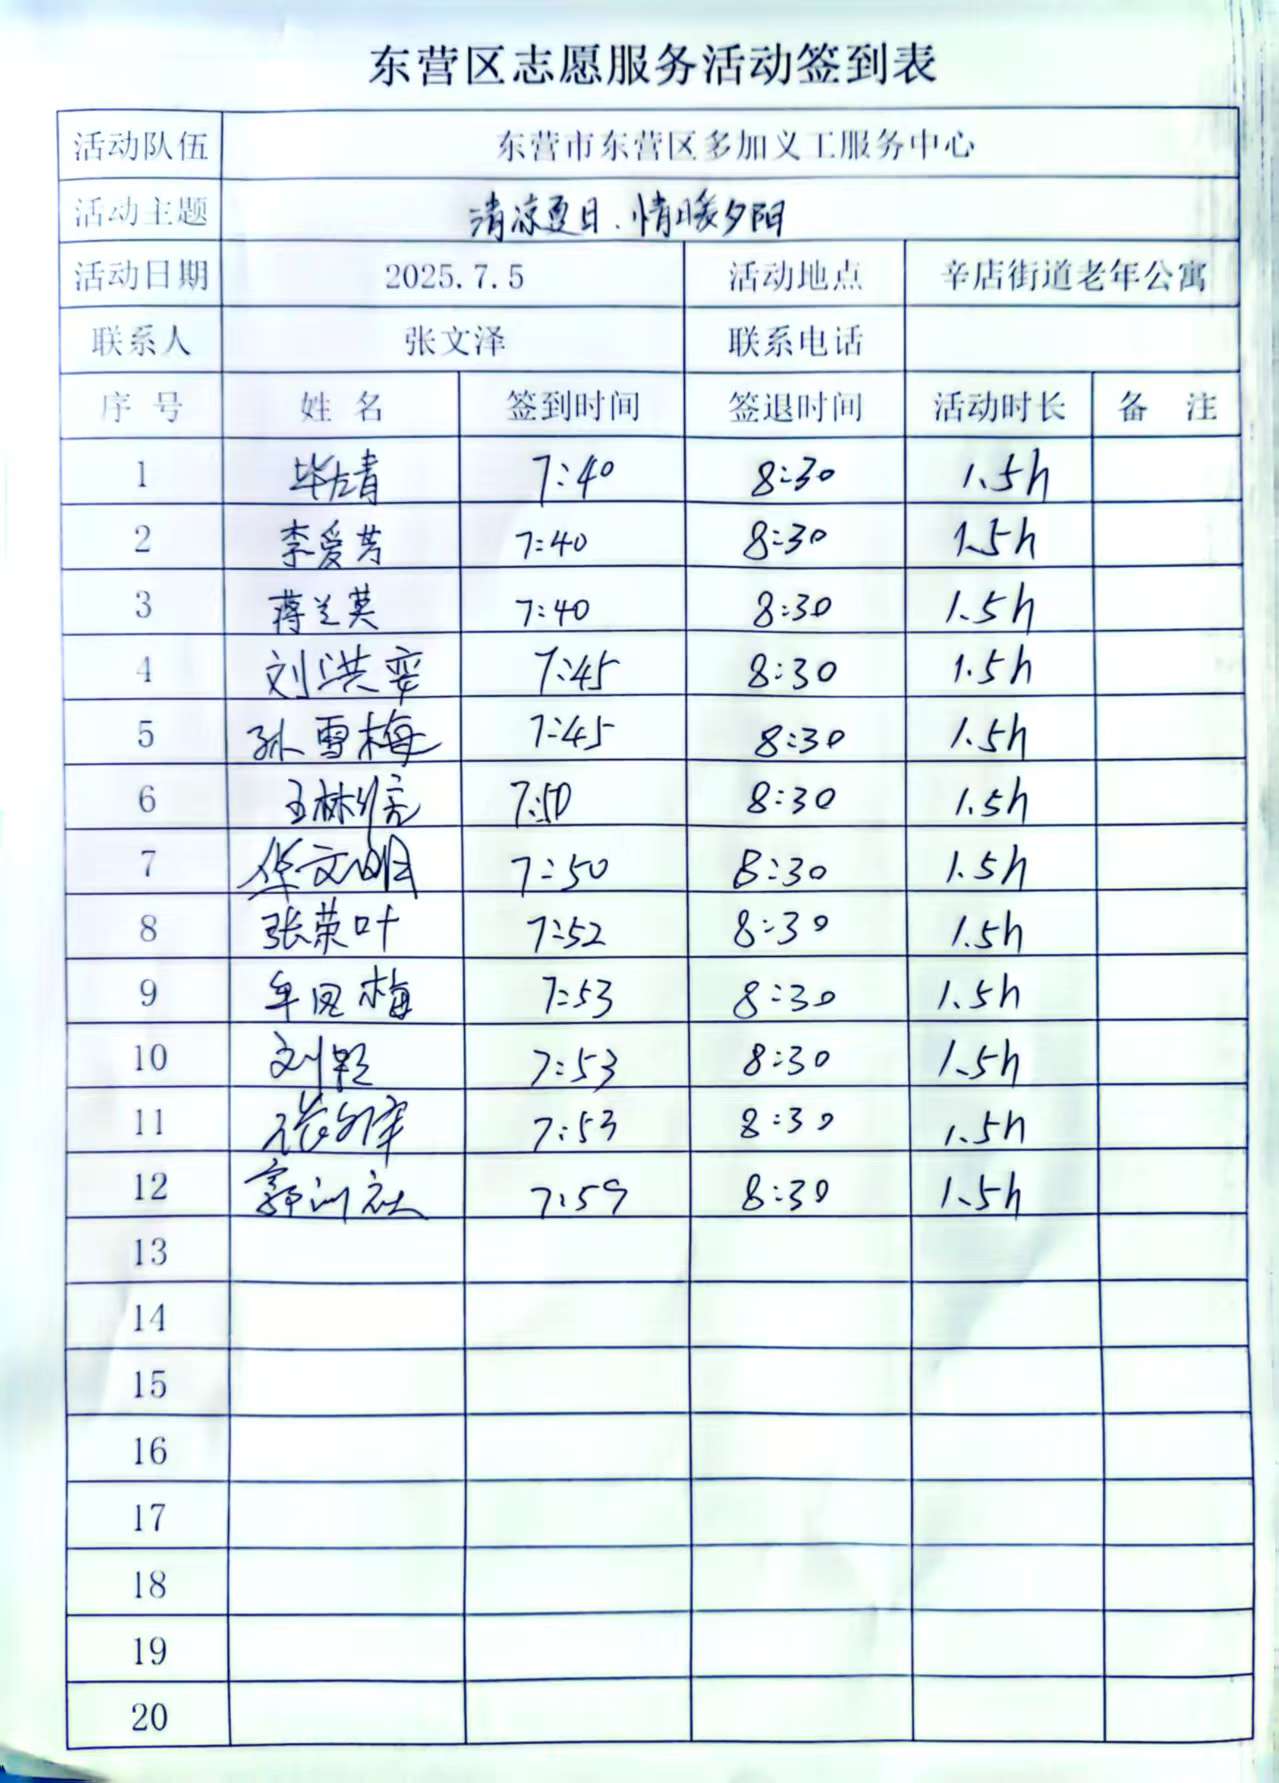 东营区志愿服务活动签到表
活动队伍 东营市东营区多加义工服务中心
活动主题 清凉夏日、情暖夕阳
活动日期 2025.7.5 活动地点 辛店街道老年公寓
联系人 张文泽 联系电话
序号 姓名 签到时间 签退时间 活动时长 备注
1 7:40 8:30 1.5h
2 李爱芳 7:40 8:30 1.5h
3 蒋兰英 7:40 8:30 1.5h
4 刘洪奕 7:45 8:30 1.5h
5 孙雪梅 7:45 8:30 1.5h
6 7:50 8:30 1.5h
7 华文明 7:50 8:30 1.5h
8 张荣叶 7:52 8:30 1.5h
9 牟凤梅 7:53 8:30 1.5h
10 刘颖 7:53 8:30 1.5h
11 7:53 8:30 1.5h
12 7:59 8:30 1.5h
13
14
15
16
17
18
19
20